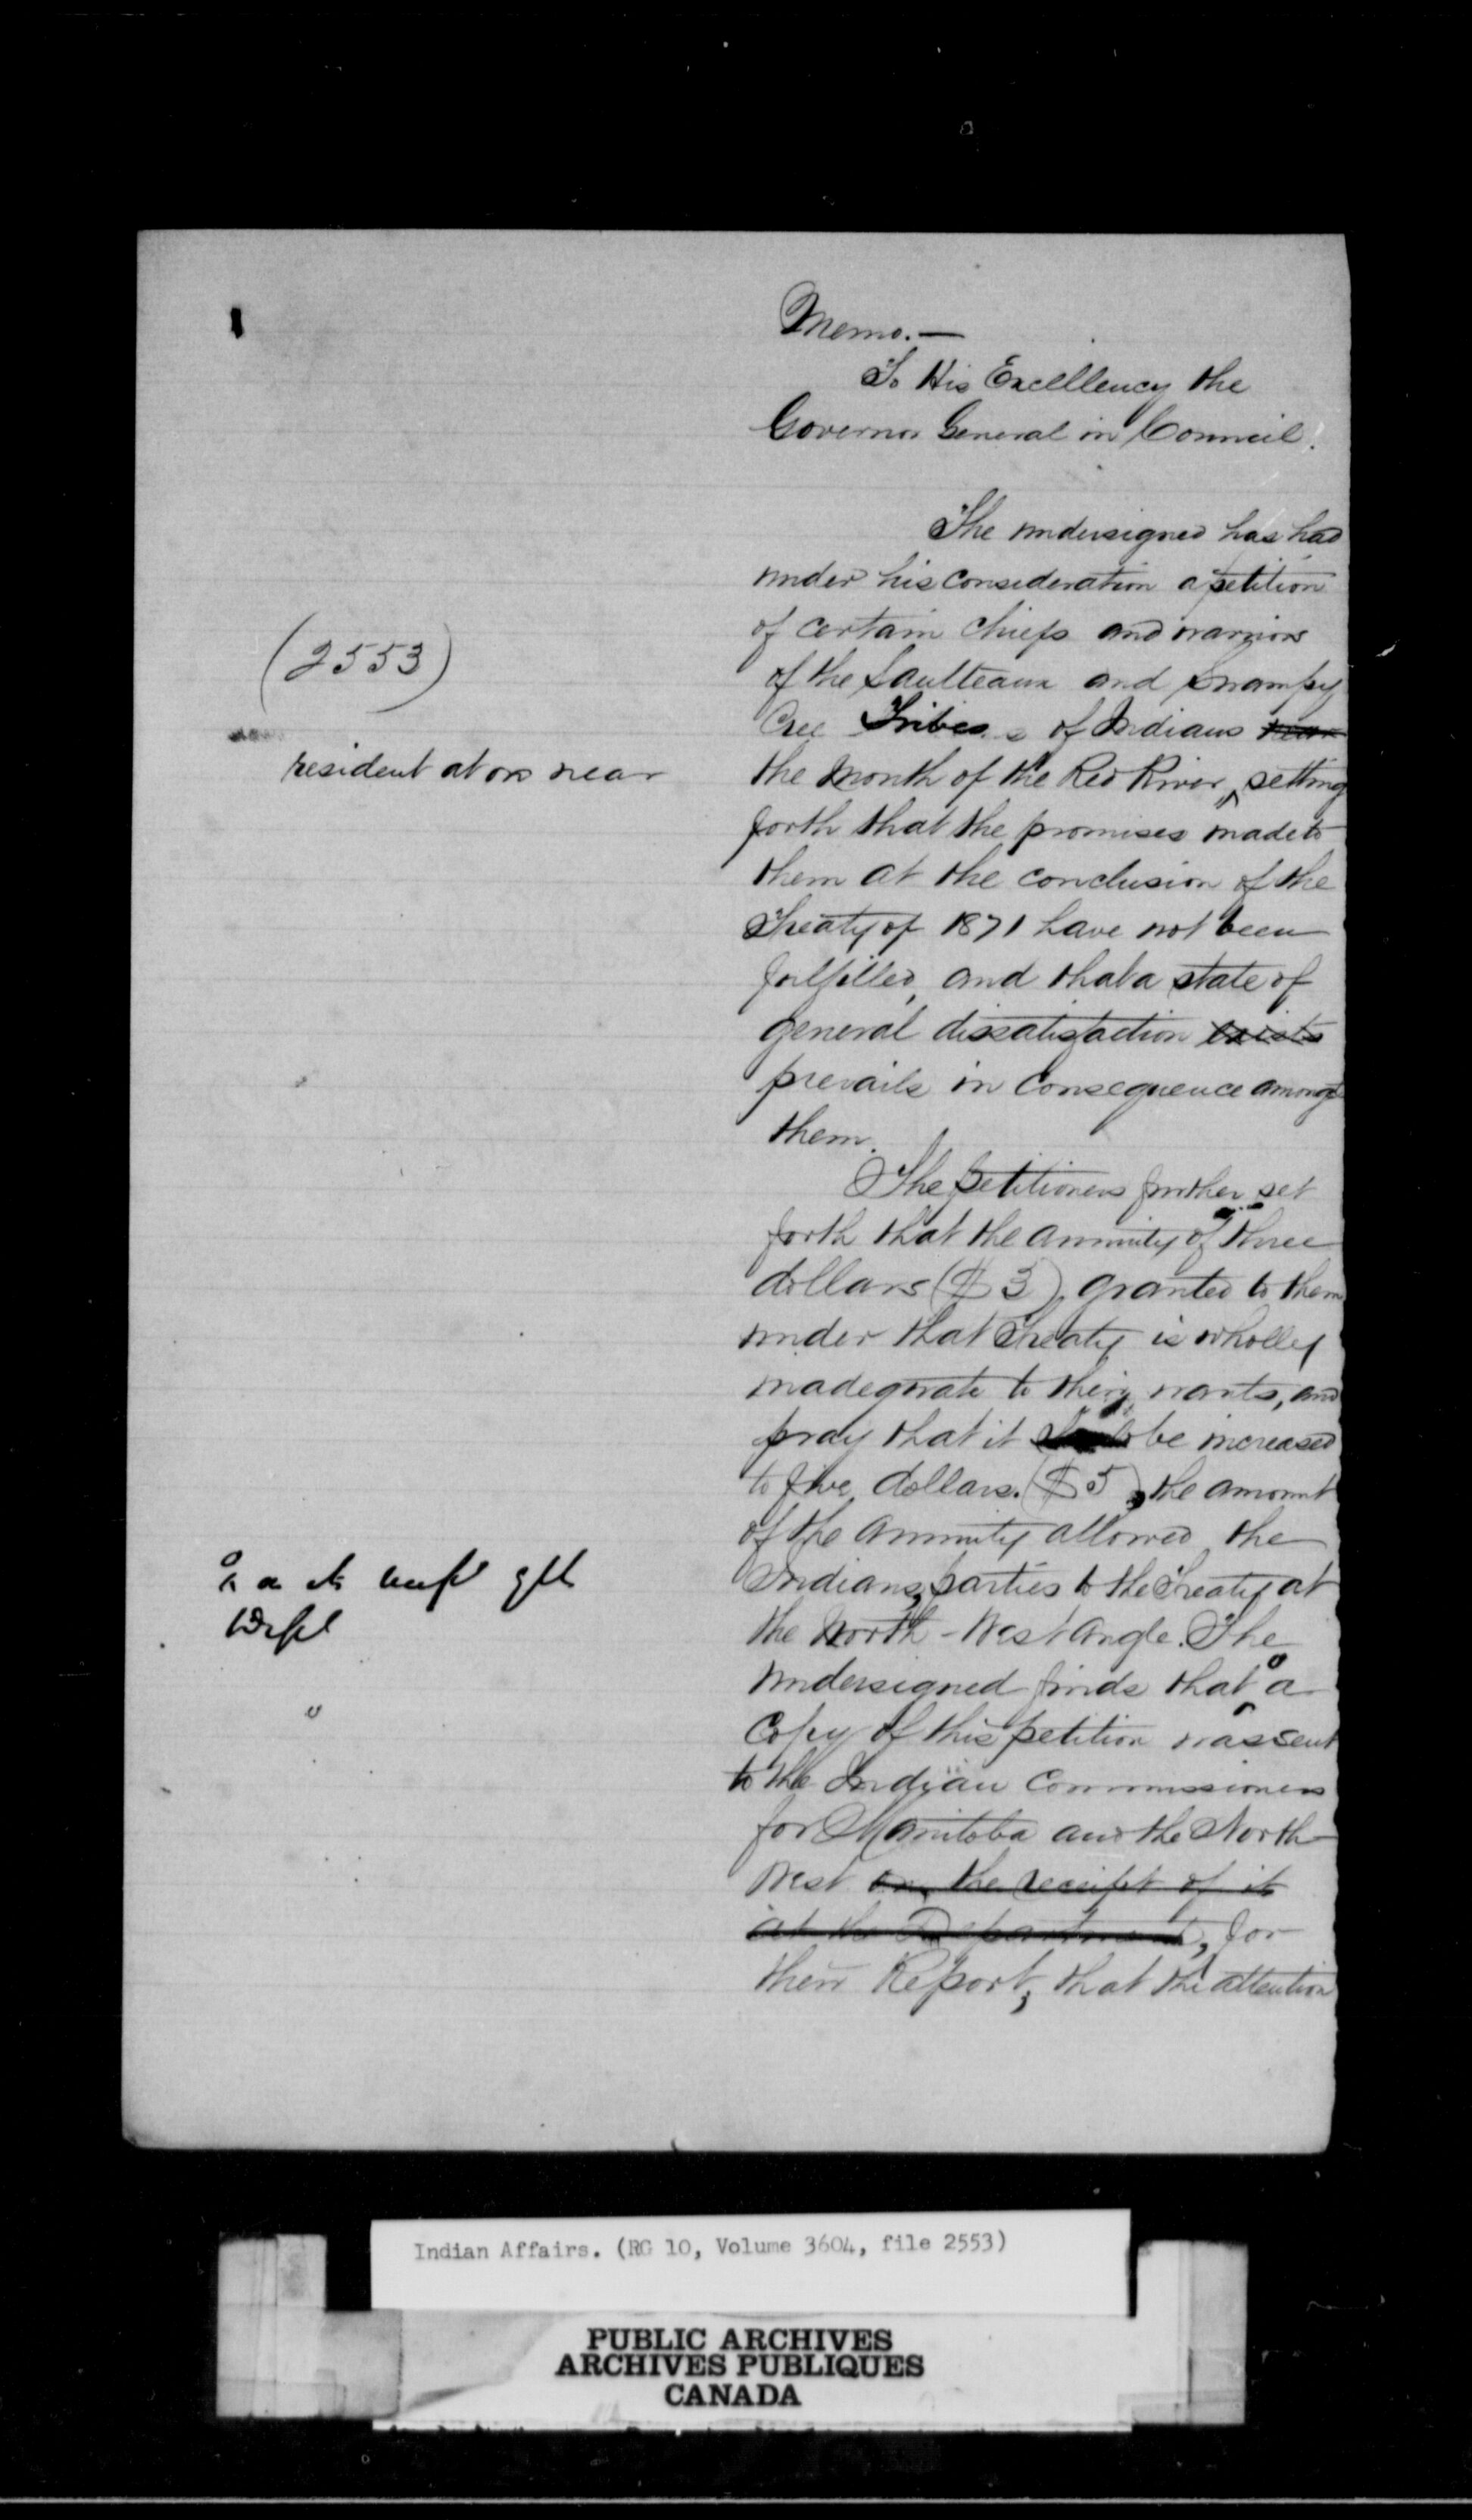 Memo.—
To His Excellency the
Governor General in Council.
The undersigned has had
under his consideration a petition
of certain Chiefs and warriors
of the Saulteaux and Swampy
(2553)
Cree Tribes of Indians near
resident at or near
the mouth of the Red River, setting
forth that the promises made to
them at the conclusion of the
Treaty of 1871 have not been
fulfilled, and that a state of
general dissatisfaction exists
prevails in consequence amongst
them.
The petitioners further set
forth that the annuity of three
dollars ($3), granted to them
under that Treaty is wholly
inadequate to their wants, and
pray that it be increased
to five dollars. ($5), the amount
of the annuity allowed the
Indians, parties to the Treaty at
the North-West Angle. The
undersigned finds that a
Copy of this petition was sent
to the Indian Commissioners
for Manitoba and the North
West on the receipt of it
at the Department, for
their Report; that the attention
Indian Affairs. (RG 10, Volume 3604, file 2553)
PUBLIC ARCHIVES
ARCHIVES PUBLIQUES
CANADA